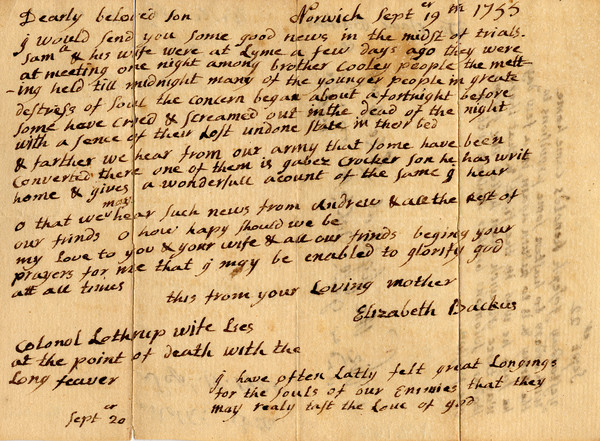 Dearly beloved Son Norwich Septer 19th 1755
I would send you some good news in the midst of trials.
Sama & his wife were at Lyme a few days ago they were
at meeting one night among brother Cooley people the meet-
-ing held till midnight many of the younger people in greate
destress of Soul the concern began about a fortnight before
some have cried & screamed out in the dead of the night
with a sence of their Lost undone state in their bed
& farther we hear from our army that some have been
converted there one of them is gabez Crocker son he has writ
home & gives a wonderfull acount of the same I hear
O that we may hear such news from Andrew & all the Rest of
our frinds O how hapy should we be
my Love to you & your wife & all our frinds beging your
prayers for me that I may be enabled to glorify god
att all times
this from your Loving mother
Elizabeth Backus
Colonol Lothrup wife Lies
at the point of death with the
Long feaver
Septer 20
I have often Latly felt great Longings
for the souls of our Enemies that they
may realy tast the Love of god